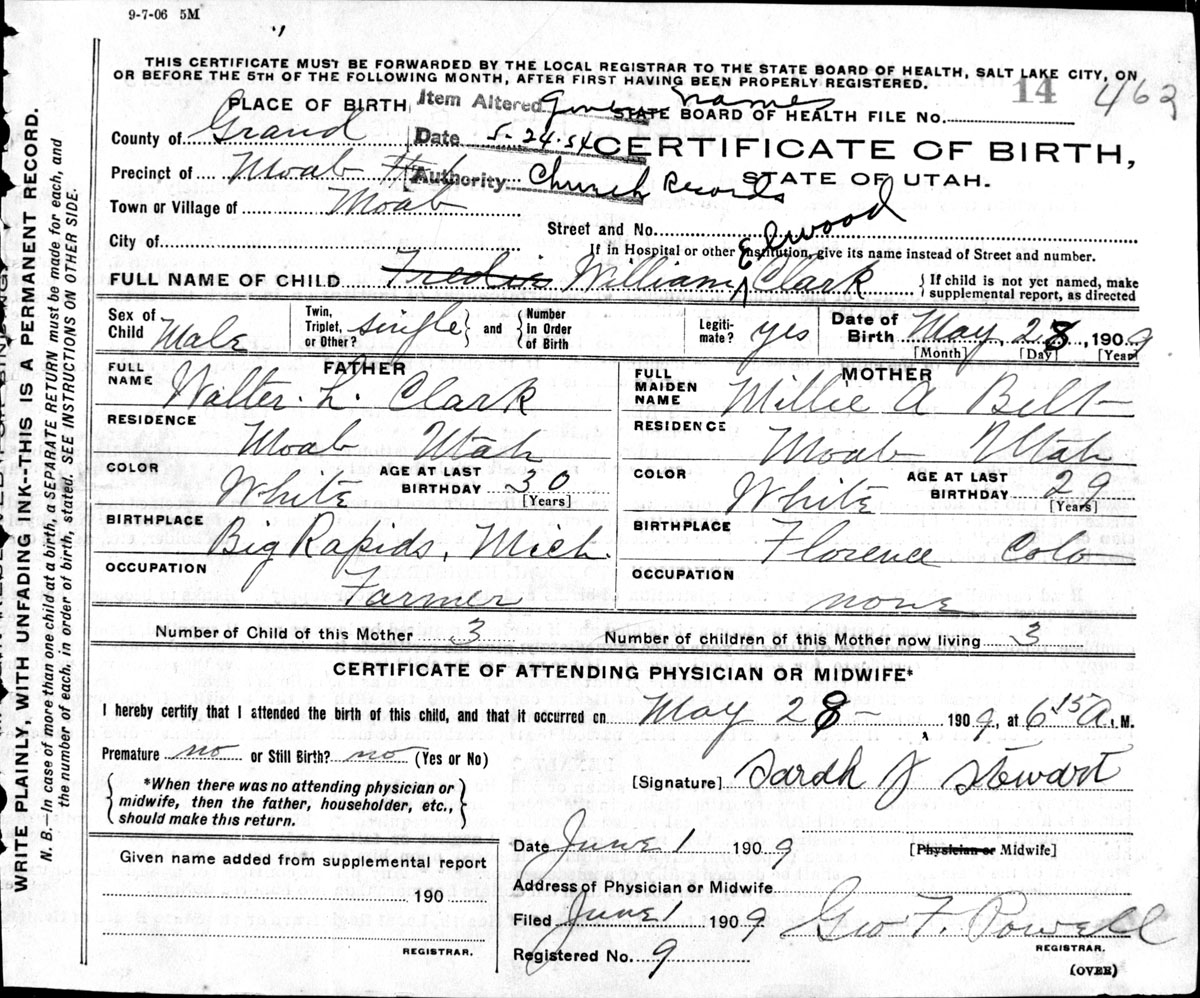 9-7-06 5M
THIS CERTIFICATE MUST BE FORWARDED BY THE LOCAL REGISTRAR TO THE STATE BOARD OF HEALTH, SALT LAKE CITY, ON
OR BEFORE THE 5TH OF THE FOLLOWING MONTH, AFTER FIRST HAVING BEEN PROPERLY REGISTERED.
14 463
PLACE OF BIRTH, Item Altered Given names STATE BOARD OF HEALTH FILE No.
County of Grand Date 5-24-54 CERTIFICATE OF BIRTH,
Precinct of Moab Authority Church Records STATE OF UTAH.
Town or Village of Moab
Street and No.
City of
If in Hospital or other Institution, give its name instead of Street and number.
Elwood
FULL NAME OF CHILD Fredric William Clark { If child is not yet named, make supplemental report, as directed
Sex of Child Male Twin, Triplet, or Other? single and Number In Order of Birth Legitimate? yes Date of Birth May, 28, 1909
[Month] [Day] [Year]
FATHER MOTHER
FULL NAME Walter. L. Clark FULL MAIDEN NAME Millie A Belt
RESIDENCE Moab Utah RESIDENCE Moab Utah
COLOR White AGE AT LAST BIRTHDAY 30 [Years] COLOR White AGE AT LAST BIRTHDAY 29 [Years]
BIRTHPLACE Big Rapids, Mich. BIRTHPLACE Florence Colo
OCCUPATION Farmer OCCUPATION none
Number of Child of this Mother 3 Number of children of this Mother now living 3
CERTIFICATE OF ATTENDING PHYSICIAN OR MIDWIFE*
I hereby certify that I attended the birth of this child, and that it occurred on May 28 - 1909, at 6 15 A. M.
Premature no or Still Birth? no (Yes or No)
[Signature] Sarah J Stewart
{ *When there was no attending physician or
midwife, then the father, householder, etc.,
should make this return. }
Date June 1 1909 [Physician or Midwife]
Given name added from supplemental report
190
REGISTRAR.
Address of Physician or Midwife
Filed June 1 1909 Geo F. Powell
REGISTRAR.
Registered No. 9
(OVER)
WRITE PLAINLY, WITH UNFADING INK--THIS IS A PERMANENT RECORD.
N. B.—In case of more than one child at a birth, a SEPARATE RETURN must be made for each, and
the number of each, in order of birth, stated. SEE INSTRUCTIONS ON OTHER SIDE.